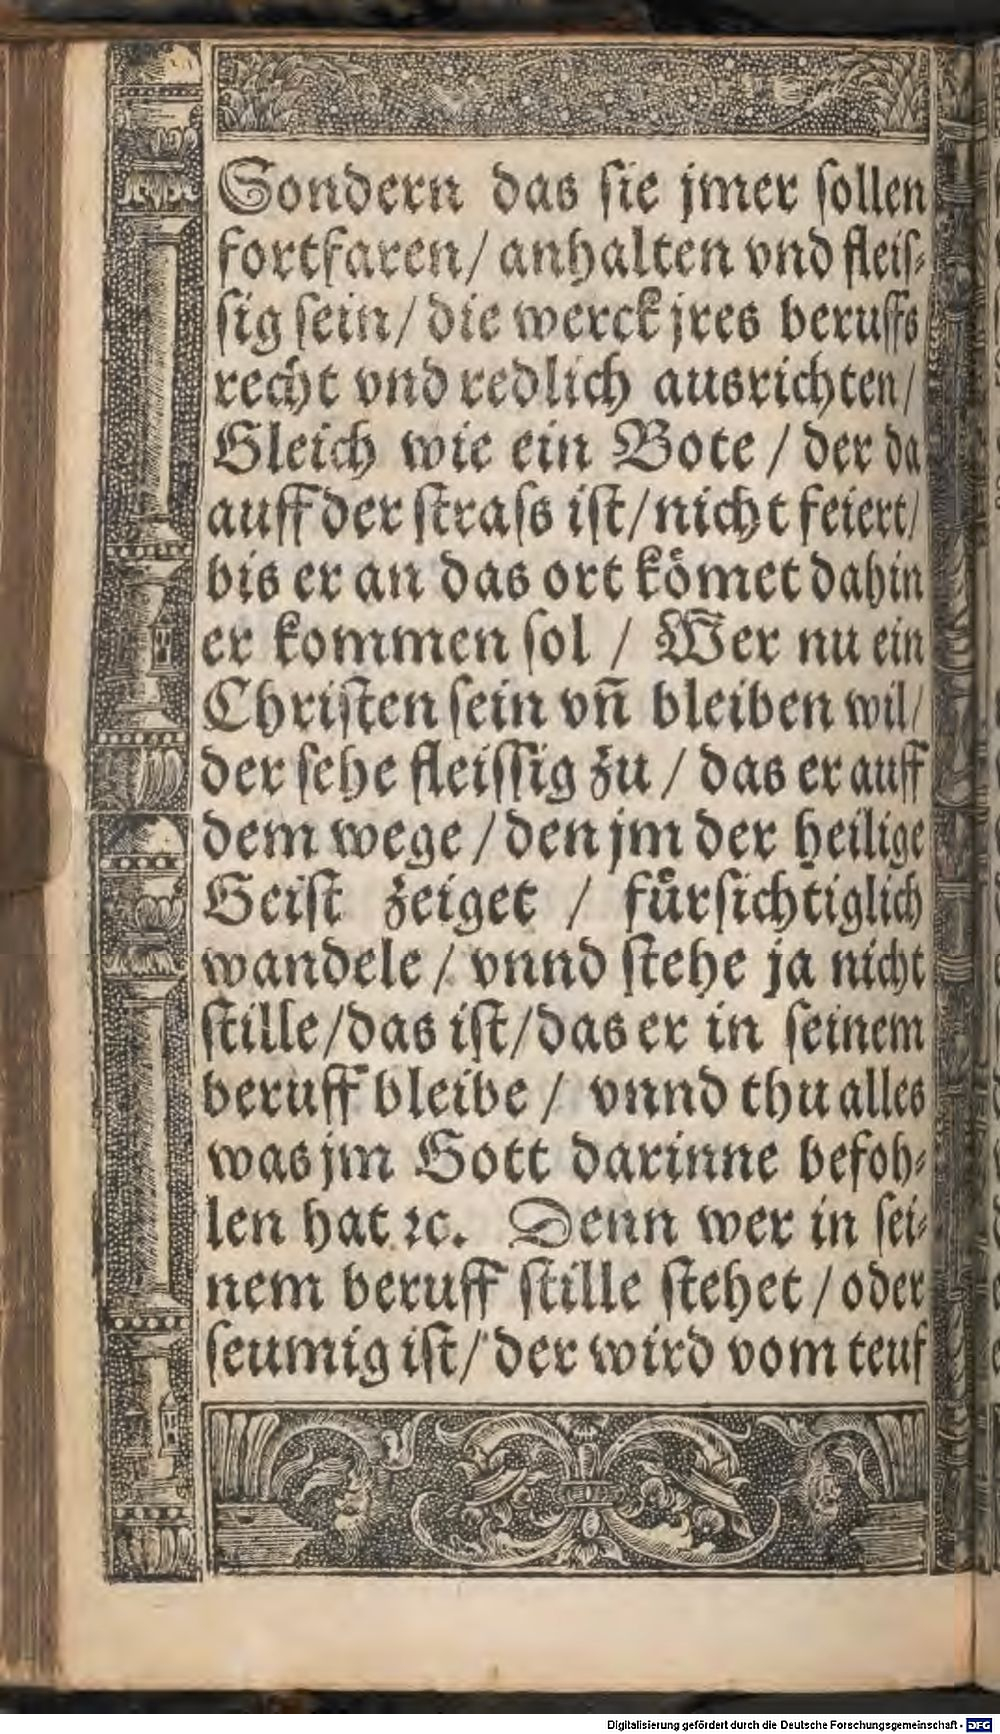 Sondern das ſie jmer ſollen
fortfaren/ anhalten vnd fleiſ⸗
ſig ſein/ die werck jres beruffs
recht vnd redlich ausrichten/
Gleich wie ein Bote / der da
auff der ſtraſs iſt/ nicht feiert/
bis er an das ort koͤmet dahin
er kommen ſol / Wer nu ein
Chriſten ſein vn̄ bleiben wil/
der ſehe fleiſſig zu / das er auff
dem wege / den jm der heilige
Geiſt zeiget / fuͤrſichtiglich
wandele / vnnd ſtehe ja nicht
ſtille/ das iſt/ das er in ſeinem
beruff bleibe / vnnd thu alles
was jm Gott darinne befoh⸗
len hat ꝛc. Denn wer in ſei⸗
nem beruff ſtille ſtehet / oder
ſeumig iſt/ der wird vom teuf
Digitalisierung gefördert durch die Deutsche Forschungsgemeinschaft - DFG